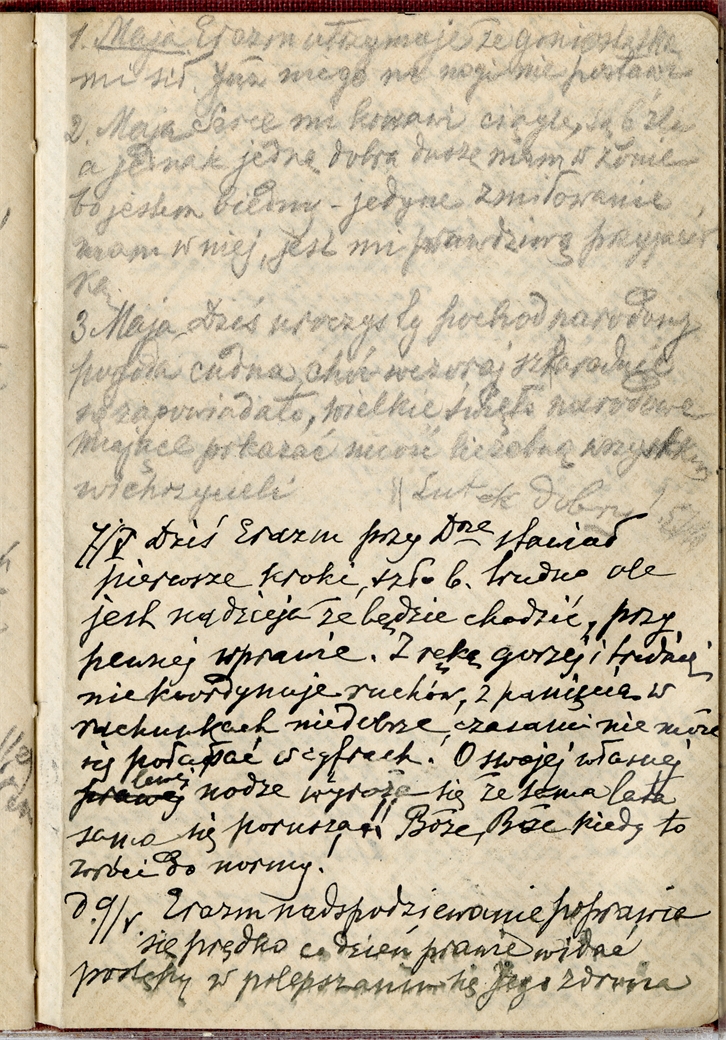 1. Maja Erazm utrzymuje że gonię resztka
mi sił. Już niego na nogi nie postawi
2. Maja Serce mi krwawi ciągle, są źli
a jednak jedną dobrą duszę mam w żonie
bo jestem biedny – jedyne zmiłowanie
mam w niej, jest mi prawdziwą przyjaciół
ką.
3 Maja Dziś uroczysty pochód narodowy
pogoda cudna, choć wczoraj szkaradnie
zapowiadało, wielkie święto narodowe
mające pokazać liczebną wszystkim
wichrzycieli
Lutek dobry!
7/V Dziś Erazm przy Drze stawiał
pierwsze kroki, szło b. trudno ale
jest nadzieja że będzie chodzić, przy
pewnej wprawie. Z ręką gorzej i trudniej
nie koordynuje ruchów, z pamięcią w
rachunkach niedobrze, czasami nie może
się połapać w cyfrach! O swojej własnej
prawej lewej nodze wyraża się że sama lata
sama się porusza!! Boże, Boże kiedy to
wróci do normy!
D. 9/V. Erazm nadspodziewanie poprawia
się prędko co dzień prawie widać
postępy w polepszaniu się Jego zdrowia